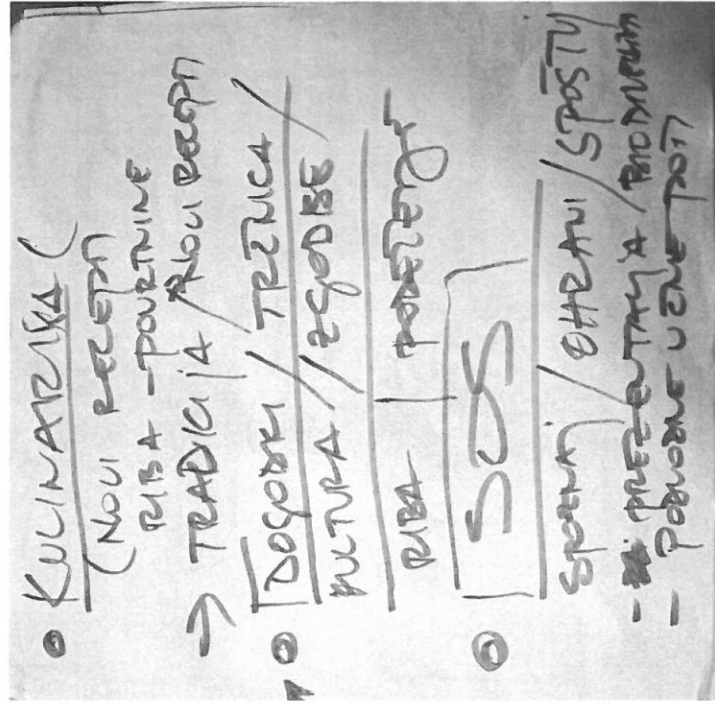 KULINARIKA (
(NOVI RECEPTI
RIBA - POVRTNINE
→ TRADICIJA / NOVI RECEPTI
DOGODKI / TRŽNICA /
KULTURA // ZGODBE /
RIBA PODEŽELJE
SOS
SPOZNAJ / OHRANI / SPOŠTUJ
- PREZENTACIJA / BIODIVERZITETA
- PODVODNE UČNE POTI